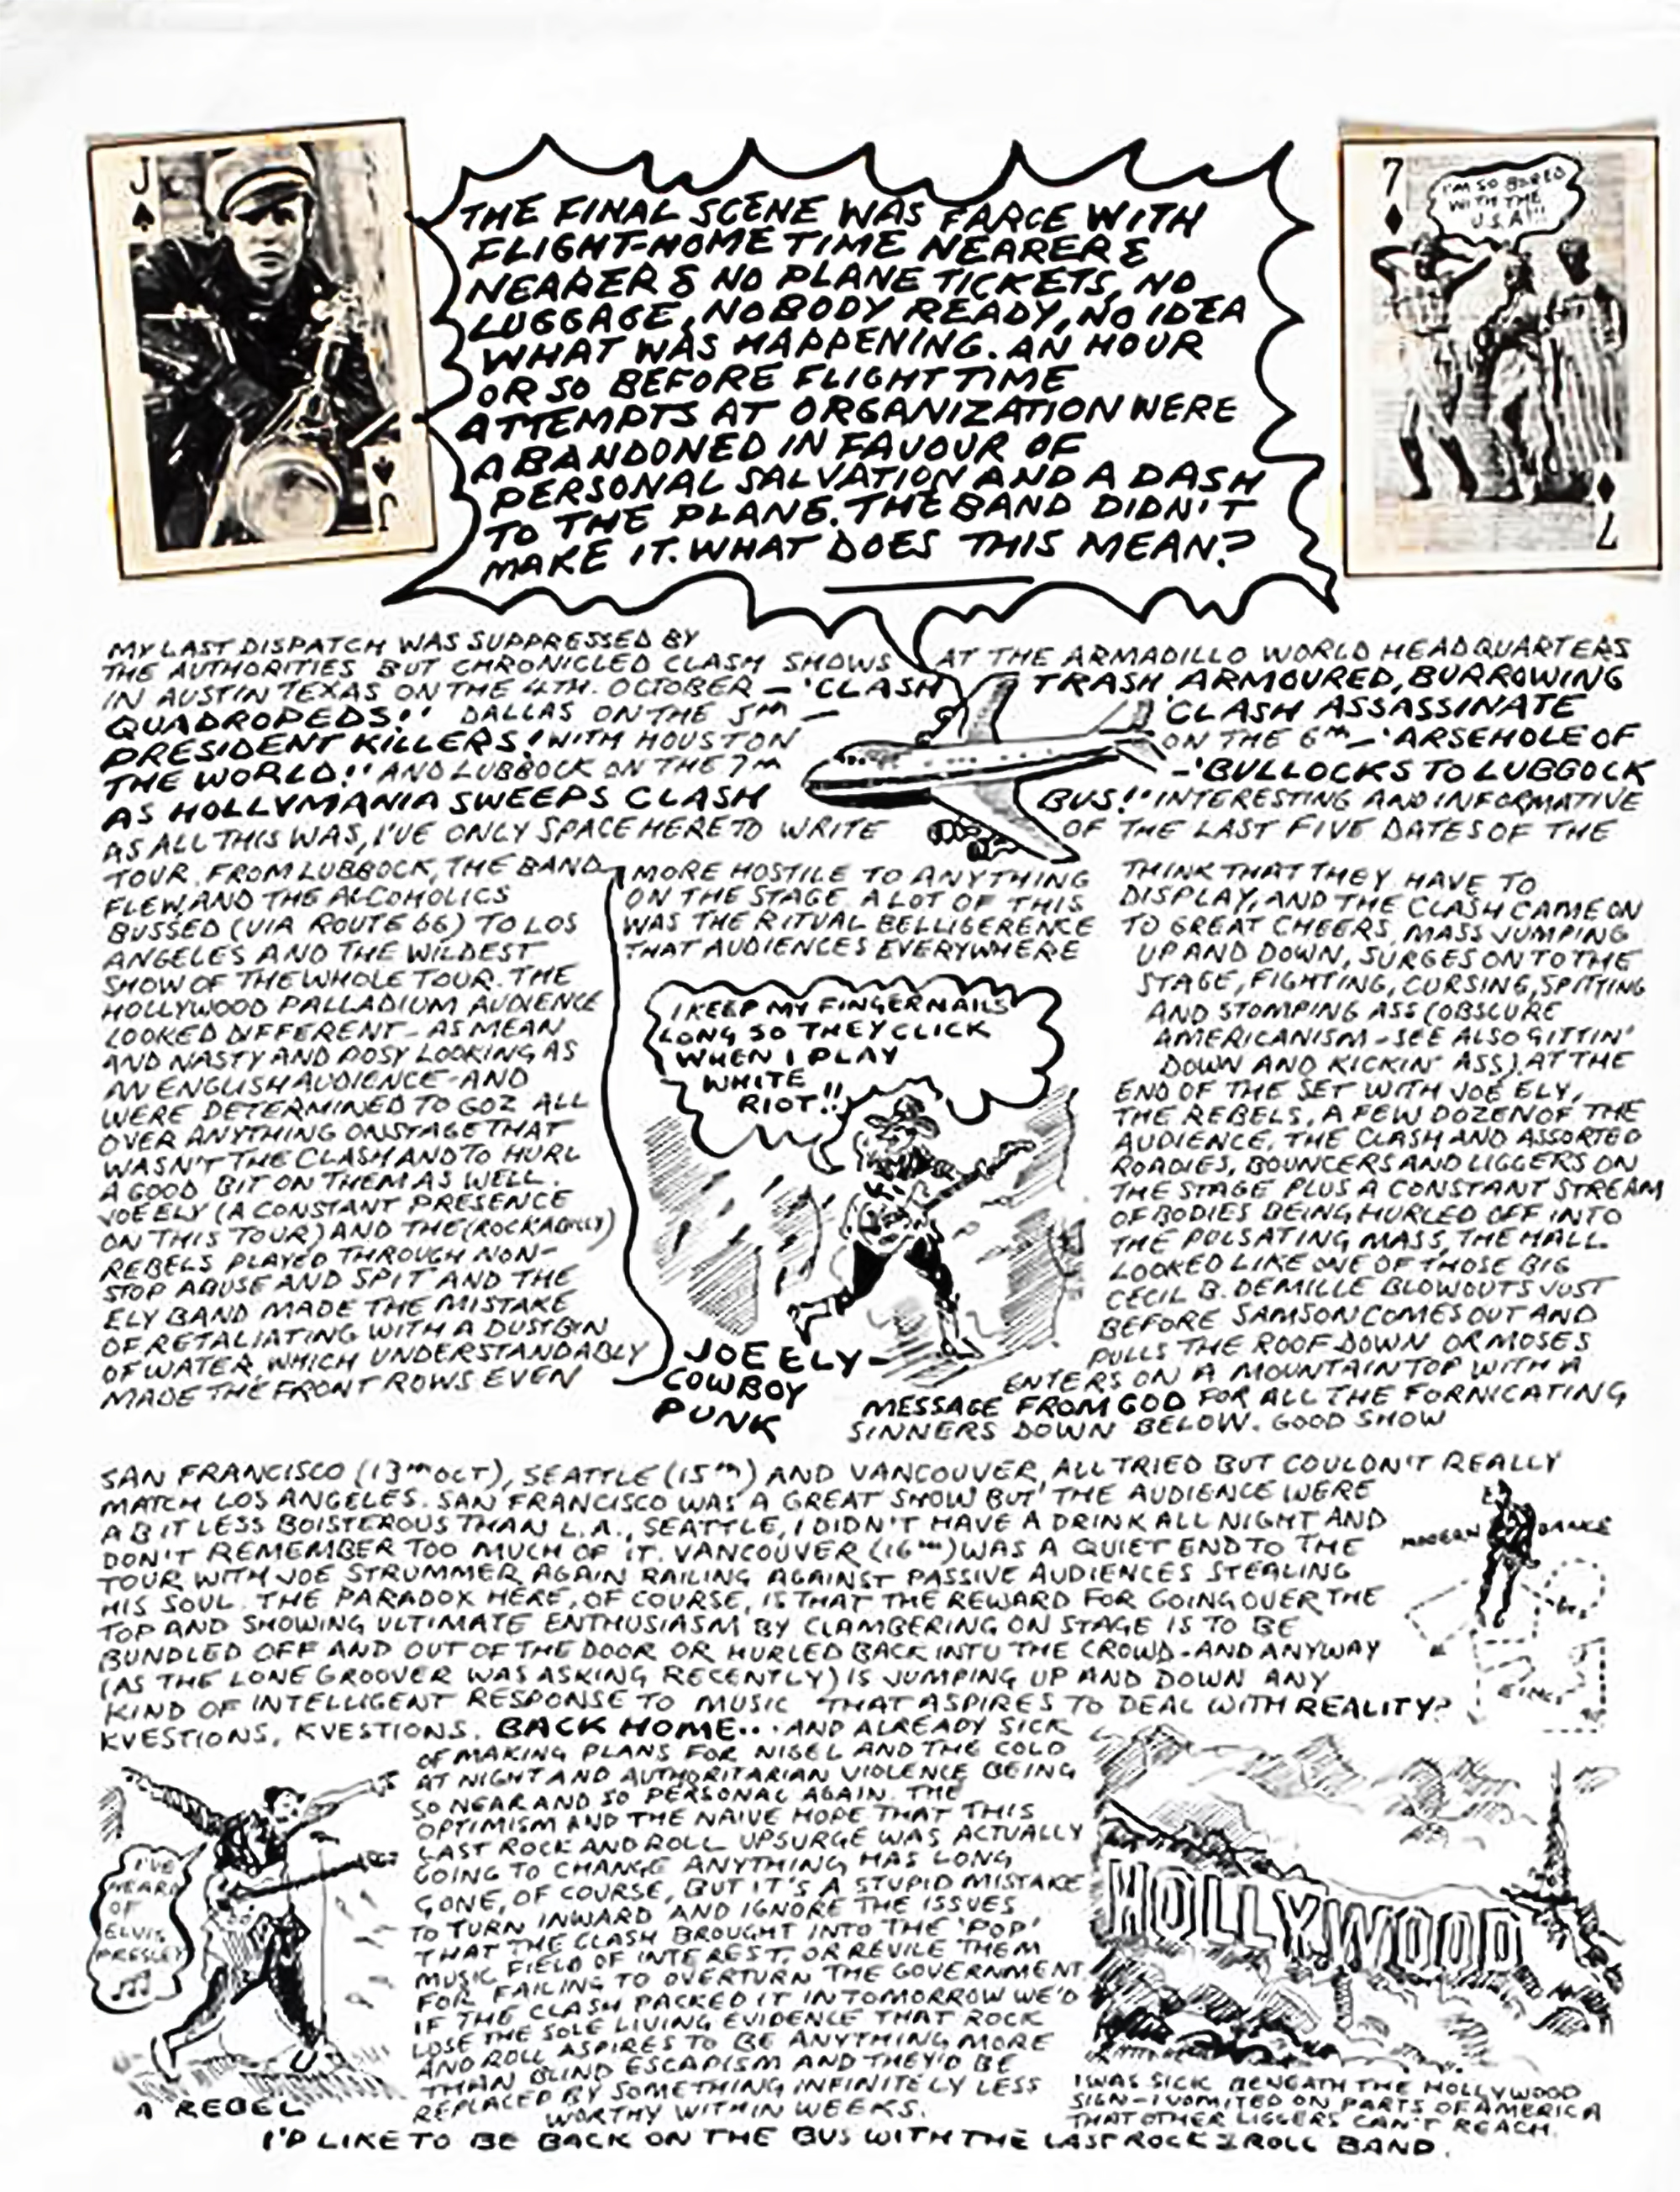 J
THE FINAL SCENE WAS FARCE WITH
FLIGHT-HOME TIME NEARER &
NEARER & NO PLANE TICKETS, NO
LUGGAGE, NOBODY READY, NO IDEA
WHAT WAS HAPPENING. AN HOUR
OR SO BEFORE FLIGHT TIME
ATTEMPTS AT ORGANIZATION WERE
ABANDONED IN FAVOUR OF
PERSONAL SALVATION AND A DASH
TO THE PLANE. THE BAND DIDN'T
MAKE IT. WHAT DOES THIS MEAN?
J
7
I'M SO BORED
WITH THE
U.S.A!!!
7
MY LAST DISPATCH WAS SUPPRESSED BY
THE AUTHORITIES BUT CHRONICLED CLASH SHOWS AT THE ARMADILLO WORLD HEADQUARTERS
IN AUSTIN TEXAS ON THE 4TH. OCTOBER – 'CLASH TRASH ARMOURED, BURROWING
QUADROPEDS!' DALLAS ON THE 5TH – 'CLASH ASSASSINATE
PRESIDENT KILLERS!' WITH HOUSTON ON THE 6TH – 'ARSEHOLE OF
THE WORLD!' AND LUBBOCK ON THE 7TH – 'BULLOCKS TO LUBBOCK
AS HOLLYMANIA SWEEPS CLASH BUS!' INTERESTING AND INFORMATIVE
AS ALL THIS WAS, I'VE ONLY SPACE HERE TO WRITE OF THE LAST FIVE DATES OF THE
TOUR. FROM LUBBOCK, THE BAND
FLEW, AND THE ALCOHOLICS
BUSSED (VIA ROUTE 66) TO LOS
ANGELES AND THE WILDEST
SHOW OF THE WHOLE TOUR. THE
HOLLYWOOD PALLADIUM AUDIENCE
LOOKED DIFFERENT – AS MEAN
AND NASTY AND POSY LOOKING AS
AN ENGLISH AUDIENCE – AND
WERE DETERMINED TO GOZ ALL
OVER ANYTHING ONSTAGE THAT
WASN'T THE CLASH AND TO HURL
A GOOD BIT ON THEM AS WELL.
JOE ELY (A CONSTANT PRESENCE
ON THIS TOUR) AND THE (ROCKABILLY)
REBELS PLAYED THROUGH NON-
STOP ABUSE AND SPIT AND THE
ELY BAND MADE THE MISTAKE
OF RETALIATING WITH A DUSTBIN
OF WATER, WHICH UNDERSTANDABLY
MADE THE FRONT ROWS EVEN
MORE HOSTILE TO ANYTHING
ON THE STAGE. A LOT OF THIS
WAS THE RITUAL BELLIGERENCE
THAT AUDIENCES EVERYWHERE
I KEEP MY FINGERNAILS
LONG SO THEY CLICK
WHEN I PLAY
WHITE
RIOT!!
JOE ELY –
COWBOY
PUNK
THINK THAT THEY HAVE TO
DISPLAY, AND THE CLASH CAME ON
TO GREAT CHEERS, MASS JUMPING
UP AND DOWN, SURGES ON TO THE
STAGE, FIGHTING, CURSING, SPITTING
AND STOMPING ASS (OBSCURE
AMERICANISM – SEE ALSO GITTIN'
DOWN AND KICKIN' ASS). AT THE
END OF THE SET WITH JOE ELY,
THE REBELS, A FEW DOZEN OF THE
AUDIENCE, THE CLASH AND ASSORTED
ROADIES, BOUNCERS AND LIGGERS ON
THE STAGE PLUS A CONSTANT STREAM
OF BODIES BEING HURLED OFF INTO
THE PULSATING MASS, THE HALL
LOOKED LIKE ONE OF THOSE BIG
CECIL B. DEMILLE BLOWOUTS JUST
BEFORE SAMSON COMES OUT AND
PULLS THE ROOF DOWN OR MOSES
ENTERS ON A MOUNTAIN TOP WITH A
MESSAGE FROM GOD FOR ALL THE FORNICATING
SINNERS DOWN BELOW. GOOD SHOW
SAN FRANCISCO (13TH OCT), SEATTLE (15TH) AND VANCOUVER, ALL TRIED BUT COULDN'T REALLY
MATCH LOS ANGELES. SAN FRANCISCO WAS A GREAT SHOW BUT THE AUDIENCE WERE
A BIT LESS BOISTEROUS THAN L.A., SEATTLE, I DIDN'T HAVE A DRINK ALL NIGHT AND
DON'T REMEMBER TOO MUCH OF IT. VANCOUVER (16TH) WAS A QUIET END TO THE
TOUR WITH JOE STRUMMER AGAIN RAILING AGAINST PASSIVE AUDIENCES STEALING
HIS SOUL. THE PARADOX HERE, OF COURSE, IS THAT THE REWARD FOR GOING OVER THE
TOP AND SHOWING ULTIMATE ENTHUSIASM BY CLAMBERING ON STAGE IS TO BE
BUNDLED OFF AND OUT OF THE DOOR OR HURLED BACK INTO THE CROWD – AND ANYWAY
(AS THE LONE GROOVER WAS ASKING RECENTLY) IS JUMPING UP AND DOWN ANY
KIND OF INTELLIGENT RESPONSE TO MUSIC THAT ASPIRES TO DEAL WITH REALITY?
KVESTIONS, KVESTIONS. BACK HOME... AND ALREADY SICK
MODERN DANCE
OF MAKING PLANS FOR NIGEL AND THE COLD
AT NIGHT AND AUTHORITARIAN VIOLENCE BEING
SO NEAR AND SO PERSONAL AGAIN. THE
OPTIMISM AND THE NAIVE HOPE THAT THIS
LAST ROCK AND ROLL UPSURGE WAS ACTUALLY
GOING TO CHANGE ANYTHING HAS LONG
GONE, OF COURSE, BUT IT'S A STUPID MISTAKE
TO TURN INWARD AND IGNORE THE ISSUES
THAT THE CLASH BROUGHT INTO THE 'POP'
MUSIC FIELD OF INTEREST, OR REVILE THEM
FOR FAILING TO OVERTURN THE GOVERNMENT.
IF THE CLASH PACKED IT IN TOMORROW WE'D
LOSE THE SOLE LIVING EVIDENCE THAT ROCK
AND ROLL ASPIRES TO BE ANYTHING MORE
THAN BLIND ESCAPISM AND THEY'D BE
REPLACED BY SOMETHING INFINITELY LESS
WORTHY WITHIN WEEKS.
I'VE
HEARD
OF
ELVIS
PRESLEY
A REBEL
HOLLYWOOD
I WAS SICK BENEATH THE HOLLYWOOD
SIGN – I VOMITED ON PARTS OF AMERICA
THAT OTHER LIGGERS CAN'T REACH.
I'D LIKE TO BE BACK ON THE BUS WITH THE LAST ROCK & ROLL BAND.